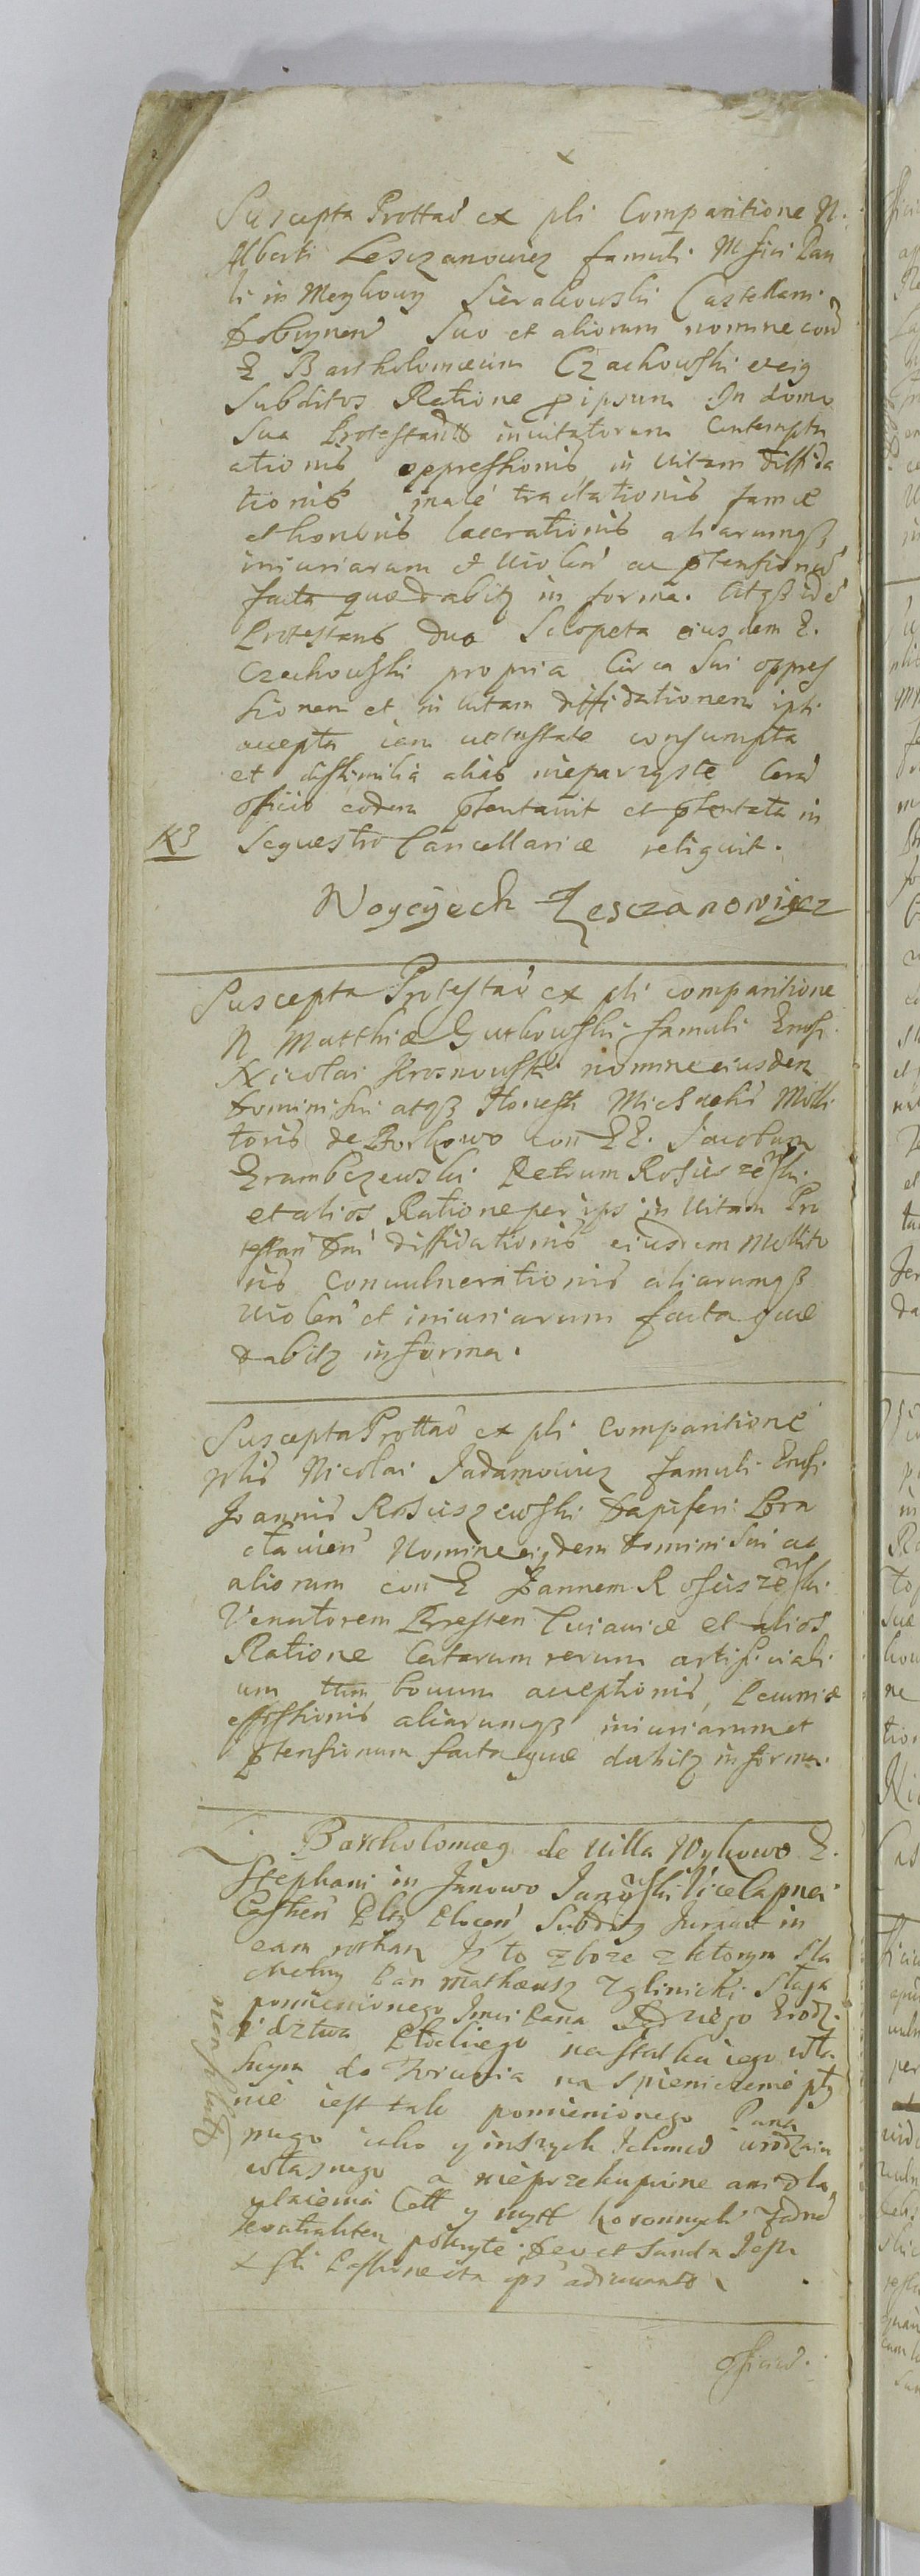 Suscepta Prottaō ex pli Comparitione N.
Alberti Lesczanowicz famuli Mfici Pau
li in Meykowy Sierakowski Castellani
Dobrynen Suo et aliorum nomine con
G Bartholomæum Czachowski eteig
Subditos Ratione p ipsum In domo
Sua Protestantis inuitatorum Contempta
ationis oppressionis in uitam diffida
tionis male tractationis famæ
et honoris lacerationis aliarumqȝ
iniuriarum et Violen ac ptensionū
facta quæ dabitȝ in forma. Atqȝ idē
Protestans duo Sclopeta eiusdem G.
Czachowski propria Circa Sui oppres
sionem et in uitam diffidationem ipsi
accepta iam uetustate consumpta
et dissimilia alias nieparzyste Corā
officio eodem ptentauit et ptentata in
Sequestro Cancellariæ reliquit.
Woyciech Lesczanowicz
Suscepta Protestaō ex pli comparitione
N Matthiæ Gutkowski famuli Grosi
Nicolai Krosnowski nomine eiusdem
Domini sui atqȝ Honesti Michaelis Moli
toris de Borkowo con GG. Jacobum
Grambczewski Petrum Rosciszewski
et alios Ratione per ips in Uitam Pro
testan Dni diffidationis eiusdem Molito
ris Conuulnerationis aliarumqȝ
Violen et iniuriarum facta quæ
dabitȝ in forma.
Suscepta Prottaō ex pli Comparitione
Nicolai Jadamowicz famuli Grosi
Joannis Rosciszewski Dapiferi
Nomine eigdem Domini Sui ac
aliorum con G Joannem Rosciszewski
Venatorem Bresten Cuiauiæ et alios
Ratione Certarum rerum artificiali
um tum bouum acceptionis, Pecuniæ
aliarumqȝ iniuriarum et
ptensionum facta quæ dabitȝ in forma.
L. Bartholomæg de Uilla Wykowo G.
Stephani in Janowo Janowski
Subditg Jurauit in
eam rothan Jż to zboze z ktorym Sla
chetny Pan Matheusz Zglinicki Sługa
pomienionego Jmci Pana
Płockiego na statku iego wła
snym do Torunia na Spieniezenie
nie iest tak pomienionego Pana
mego iako y inszych Ichmciow urodzaiu
własnego a nieprzekupione ani dla
ułacienia Cełł y mytt koronnych
pokryte. Deus et Sancta Jesu
Xsti Passione ita ips adiuuando
officiū.